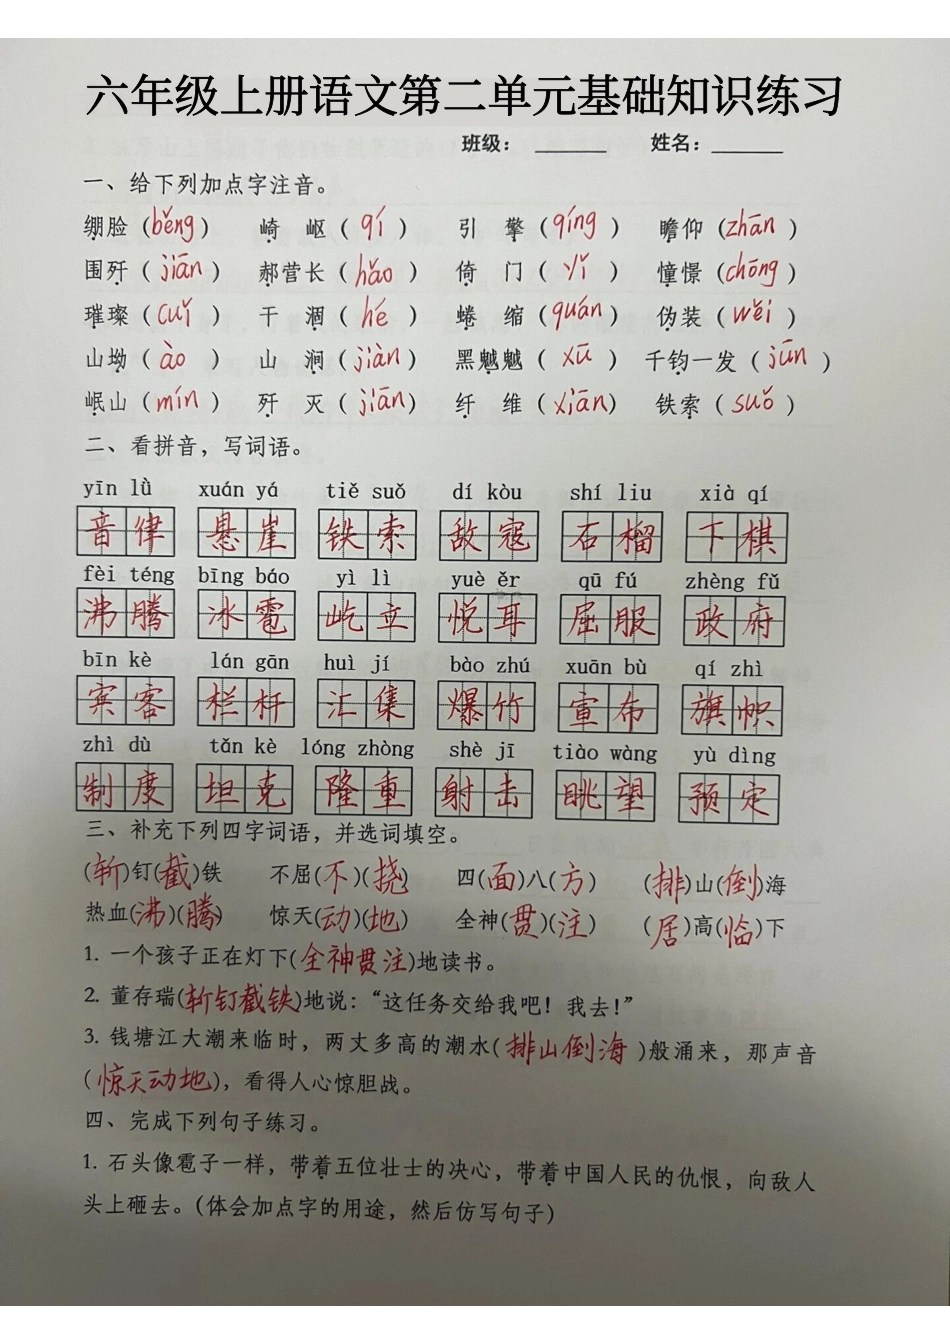 六年级上册语文第二单元基础知识练习
班级： ______ 姓名：______
一、给下列加点字注音。
绷脸（běng） 崎 岖（qí） 引 擎（qíng） 瞻仰（zhān）
围歼（jiān） 郝营长（hǎo） 倚 门（yǐ） 憧憬（chōng）
璀璨（cuǐ） 干 涸（hé） 蜷 缩（quán） 伪装（wěi）
山坳（ào） 山 涧（jiàn） 黑魆魆（xū） 千钧一发（jūn）
岷山（mín） 歼 灭（jiān） 纤 维（xiān） 铁索（suǒ）
二、看拼音，写词语。
yīn lǜ xuán yá tiě suǒ dí kòu shí liu xià qí
音律 悬崖 铁索 敌寇 石榴 下棋
fèi téng bīng báo yì lì yuè ěr qū fú zhèng fǔ
沸腾 冰雹 屹立 悦耳 屈服 政府
bīn kè lán gān huì jí bào zhú xuān bù qí zhì
宾客 栏杆 汇集 爆竹 宣布 旗帜
zhì dù tǎn kè lóng zhòng shè jī tiào wàng yù dìng
制度 坦克 隆重 射击 眺望 预定
三、补充下列四字词语，并选词填空。
(斩)钉(截)铁 不屈(不)(挠) 四(面)八(方) (排)山(倒)海
热血(沸)(腾) 惊天(动)(地) 全神(贯)(注) (居)高(临)下
1. 一个孩子正在灯下(全神贯注)地读书。
2. 董存瑞(斩钉截铁)地说：“这任务交给我吧！我去！”
3. 钱塘江大潮来临时，两丈多高的潮水(排山倒海)般涌来，那声音
(惊天动地)，看得人心惊胆战。
四、完成下列句子练习。
1. 石头像雹子一样，带着五位壮士的决心，带着中国人民的仇恨，向敌人
头上砸去。(体会加点字的用途，然后仿写句子)